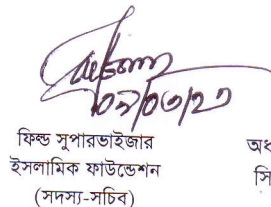 ০৯/০৩/২৩
ফিল্ড সুপারভাইজার
ইসলামিক ফাউন্ডেশন
(সদস্য-সচিব)
অধ
সি